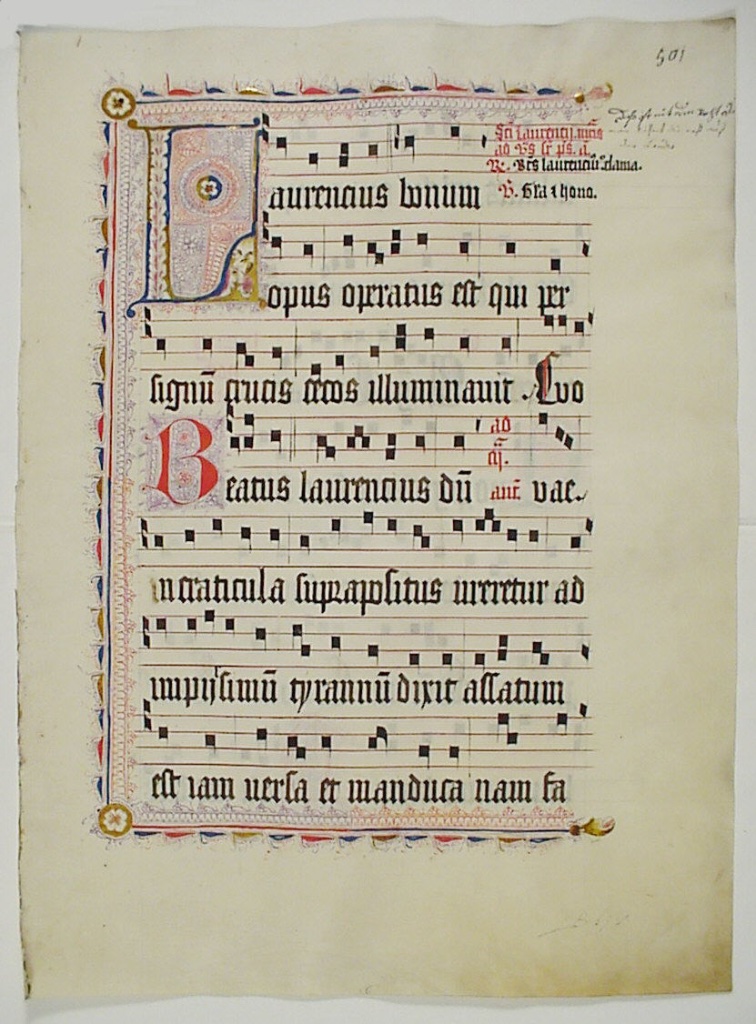 501
Sti laurentij. mris
ad vs̄ sr̄ ps. a.
Laurencius bonum
R. Btˢ laurenciuˢ clama.
V. Gła ⁊ hono.
opus operatus est qui per
signū crucis cecos illuminauit . Euo
Beatus laurencius dū
ad
ant̄.
vae.
in craticula suprapositus ureretur ad
impijssimū tyrannū dixit assatum
est iam uersa et manduca nam fa